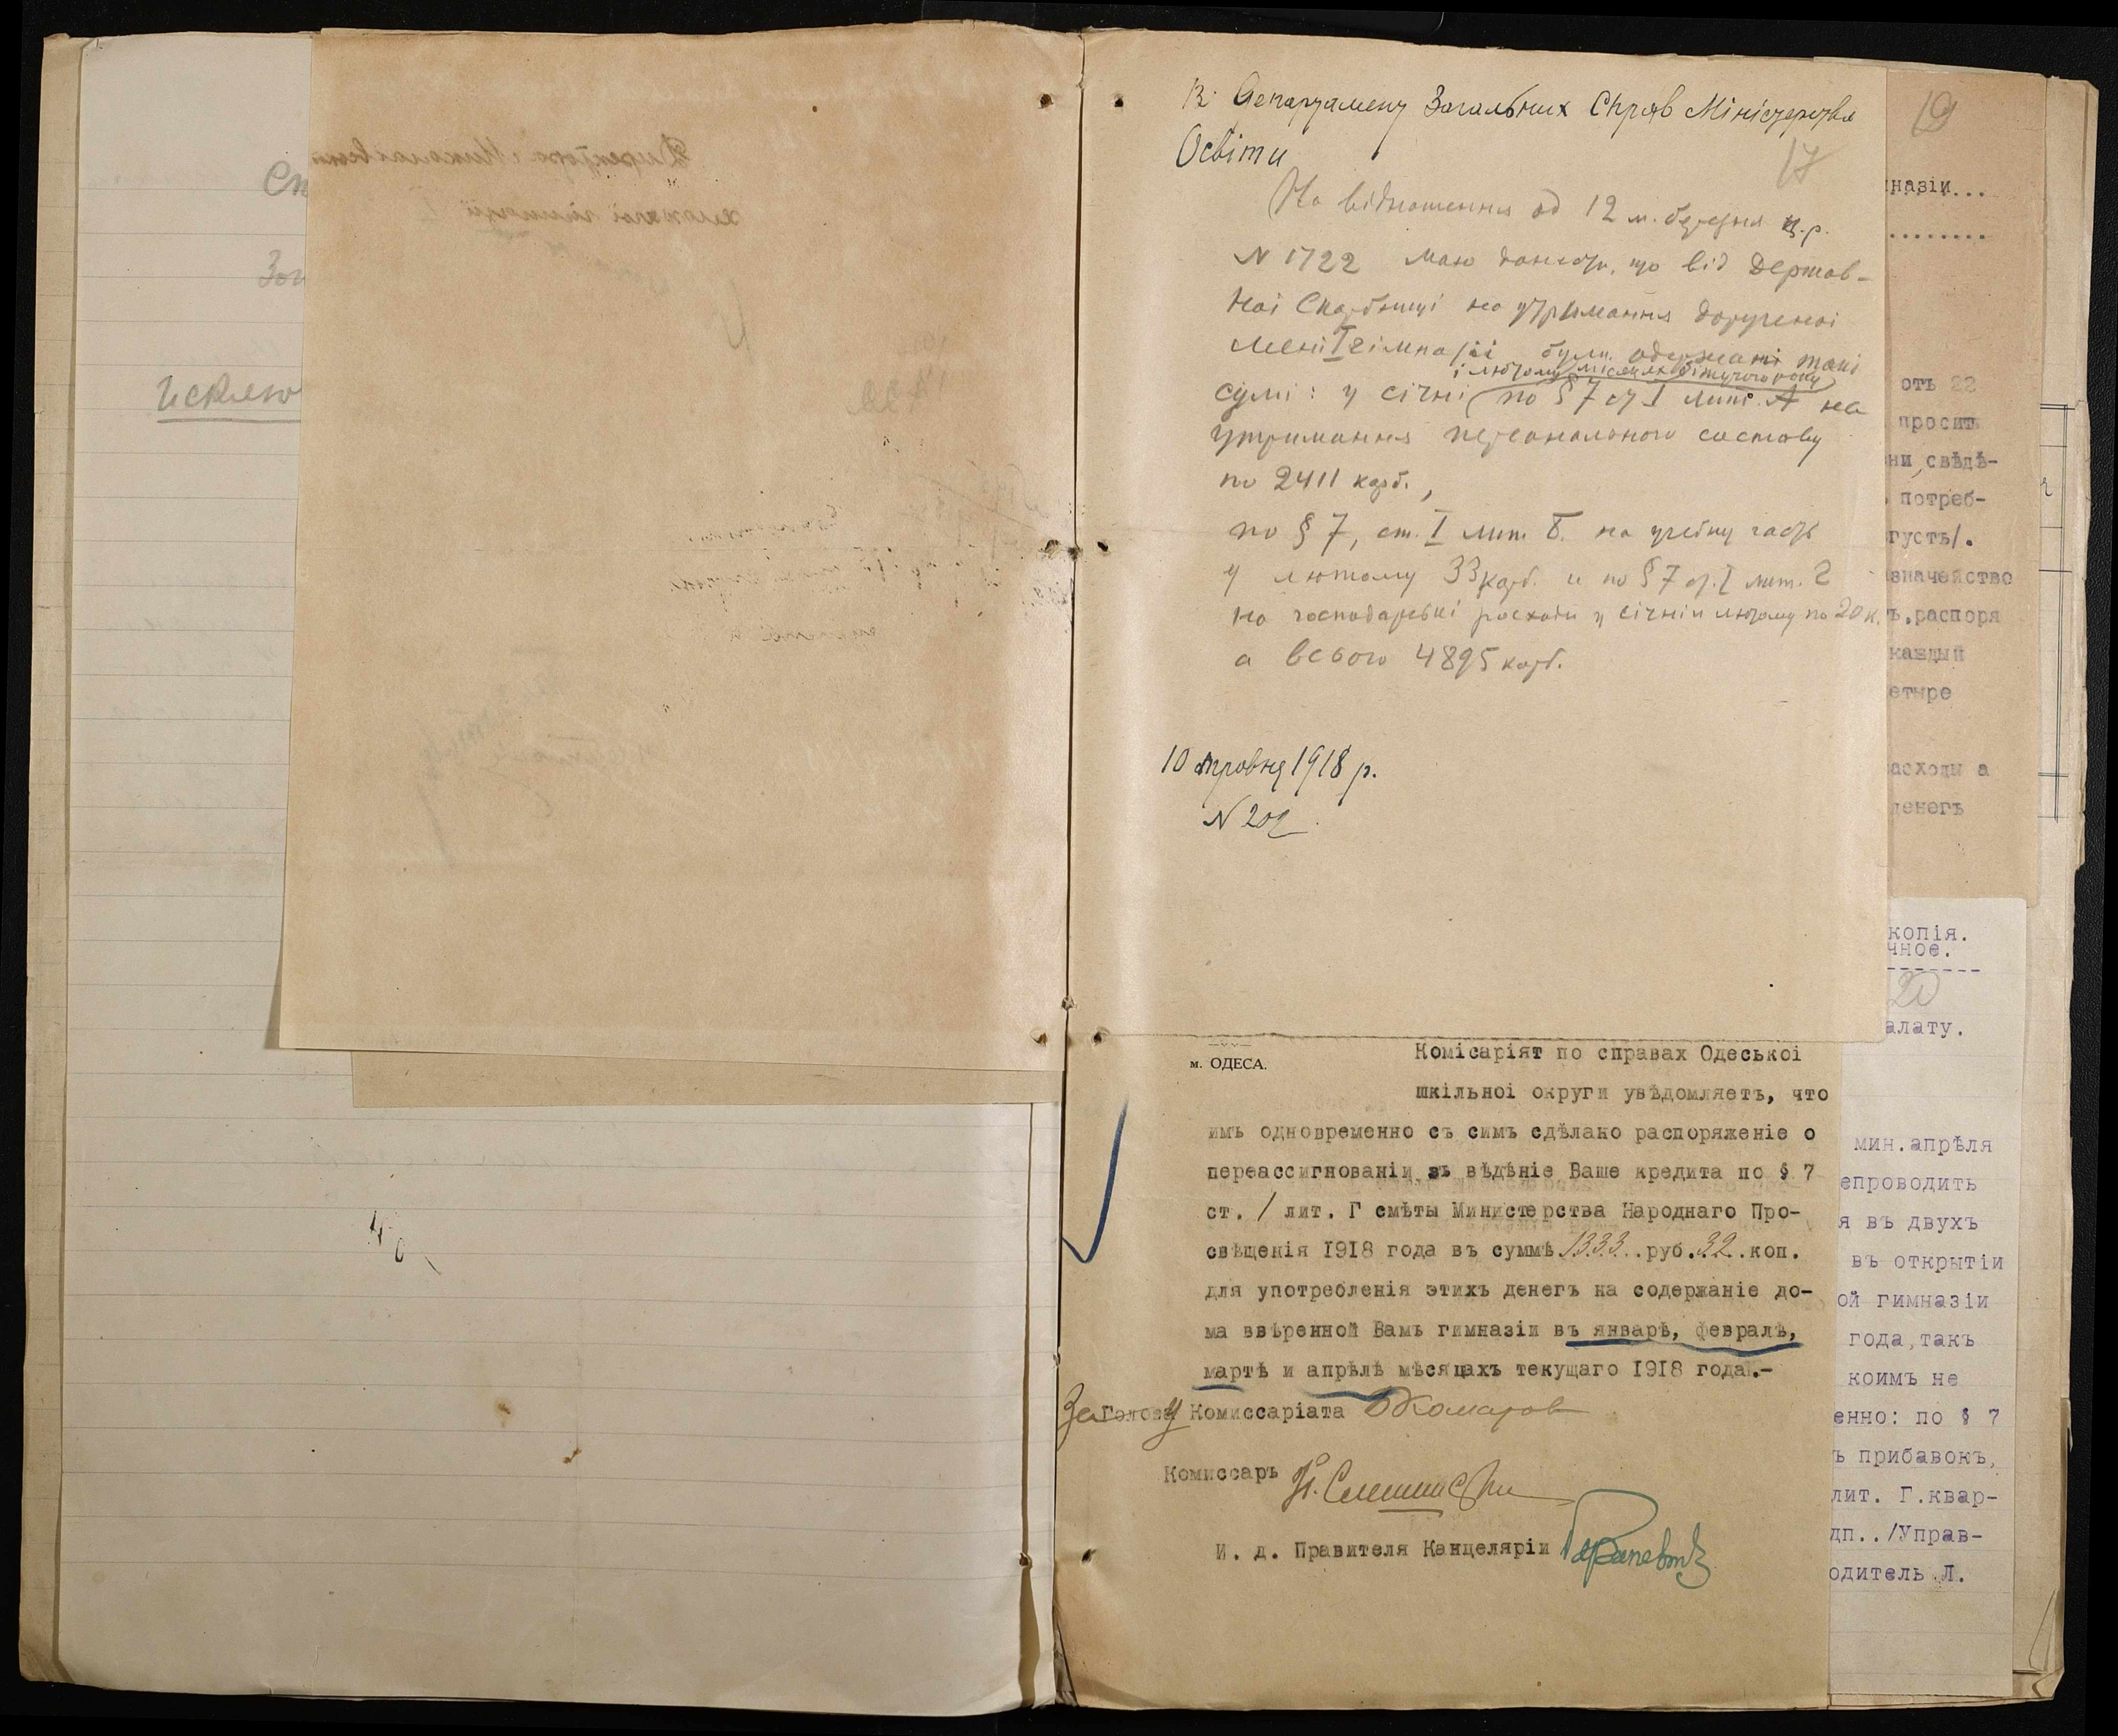 Сп
Зог
исклю
В Департамент Загальних Справ Міністерства
Освіти
17
На відношення од 12 м. березня ц.р.
N 1722 маю донести, що від Держав-
ноі Скарбниці на утримання дорученоі
мені I гімназіі були одержані такі
і лютому місяцях біжучого року
сумі: у січні по § 7 ст I лит. А на
утримання персонального составу
по 2411 карб.,
по § 7, ст. I лит Б. на учебну часть
у лютому 33 карб. и по § 7 ст. I лит. г
на господарські росходи у січні и лютому по 20 к.
а всього 4895 карб.
10 травня 1918 р.
N 202
м. ОДЕСА.
Комісаріят по справах Одеськоі
шкільноі округи увѣдомляетъ, что
имъ одновременно съ симъ сдѣлако распоряженіе о
переассигнованіи въ вѣдѣніе Ваше кредита по § 7
ст. 1 лит. Г смѣты Министерства Народнаго Про-
свѣщенія 1918 года въ суммѣ 1333..руб.32..коп.
для употребленія этихъ денегъ на содержаніе до-
ма ввѣренной Вамъ гимназіи въ январѣ, февралѣ,
мартѣ и апрѣлѣ мѣсяцахъ текущаго 1918 года.-
За Голову Комиссаріата Комаров
Комиссаръ
И. д. Правителя Канцеляріи
19
назіи...
........
отъ 22
просить
ни свѣдѣ-
потреб-
густъ/.
значейство
ъ.распоря
каждый
етыре
асходы а
денегъ
копія.
чное.
-------
20
алату.
мин.апрѣля
епроводить
я въ двухъ
въ открытіи
ой гимназіи
года,такъ
коимъ не
енно: по § 7
ъ прибавокъ,
лит. Г.квар-
дп../Управ-
одитель Л.